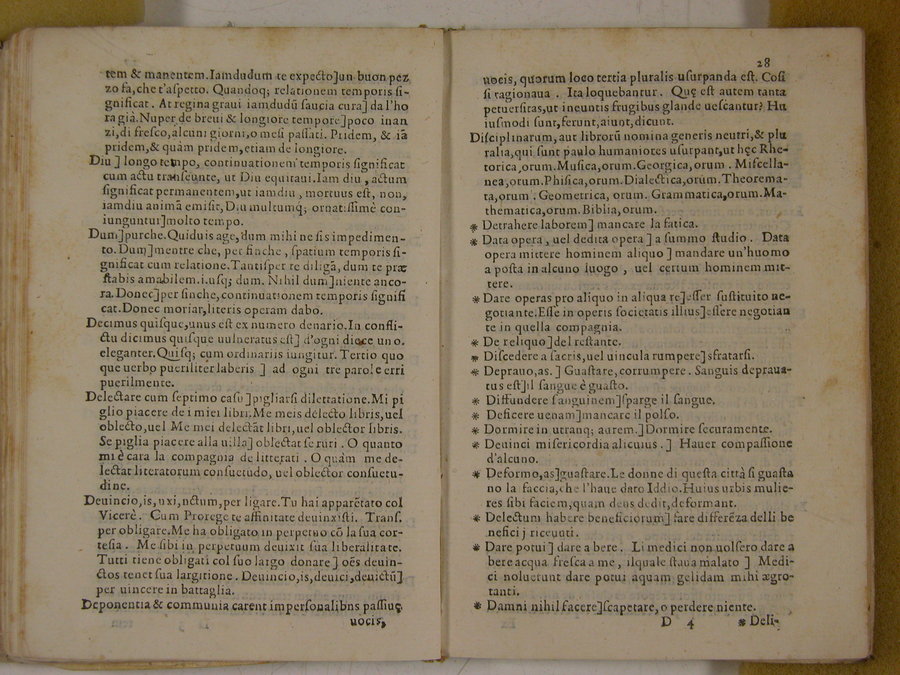 tem & manentem. Iamdudum te expecto]un buon pez
zo fa, che t'aspetto. Quandoq; relationem temporis si-
gnificat. At regina graui iamdudū saucia cura] da l'ho
ra già. Nuper de breui & longiore tempore]poco inan
zi, di fresco, alcuni giorni, o mesi passati. Pridem, & iā
pridem, & quàm pridem, etiam de longiore.
Diu ] longo tempo, continuationem temporis significat
cum actu transeunte, ut Diu equitaui. Iam diu, actum
significat permanentem, ut iamdiu, mortuus est, non,
iamdiu animā emisit, Diu multumq; ornatissimè con-
iunguntur]molto tempo.
Dum]purche. Quiduis age, dum mihi ne sis impedimen-
to. Dum]mentre che, per finche, spatium temporis si-
gnificat cum relatione. Tantisper te diligā, dum te præ
stabis amabilem. i. usq; dum. Nihil dum]niente anco-
ra. Donec]per finche, continuationem temporis signifi
cat. Donec moriar, literis operam dabo.
Decimus quisque, unus est ex numero denario. In confli-
ctu dicimus quisque uulneratus est] d'ogni diece uno.
eleganter. Quisq; cum ordinariis iungitur. Tertio quo
que uerbo pueriliter laberis ] ad ogni tre parole erri
puerilmente.
Delectare cum septimo casu ]pigliarsi dilettatione. Mi pi
glio piacere de i miei libri. Me meis delecto libris, uel
oblecto, uel Me mei delectāt libri, uel oblector libris.
Se piglia piacere alla uilla] oblectat se ruri. O quanto
mi è cara la compagnia de litterati. O quàm me de-
lectat literatorum consuetudo, uel oblector consuetu-
dine.
Deuincio, is, nxi, nctum, per ligare. Tu hai apparētato col
Vicerè. Cum Prorege te affinitate deuinxisti. Trans.
per obligare. Me ha obligato in perpetuo cō la sua cor-
tesia. Me sibi in perpetuum deuixit sua liberalitate.
Tutti tiene obligati col suo largo donare] oēs deuin-
ctos tenet sua largitione. Deuincio, is, deuici, deuictū]
per uincere in battaglia.
Deponentia & communia carent impersonalibns passiuę
uocis,
28
uocis, quorum loco tertia pluralis usurpanda est. Cosi
si ragionaua. Ita loquebantur. Quę est autem tanta
peruersitas, ut ineuntis frugibus glande uescantur? Hu
iusmodi sunt, ferunt, aiunt, dicunt.
Disciplinarum, aut librorū nomina generis neutri, & plu
ralia, qui sunt paulo humaniores usurpant, ut hęc Rhe-
torica, orum. Musica, orum. Georgica, orum. Miscella-
nea, orum. Phisica, orum. Dialectica, orūm. Theorema-
ta, orum. Geometrica, orum. Grammatica, orum. Ma-
thematica, orum. Biblia, orum.
* Detrahere laborem] mancare la fatica.
* Data opera, uel dedita opera ] a summo studio. Data
opera mittere hominem aliquo ] mandare un'huomo
a posta in alcuno luogo, uel certum hominem mit-
tere.
* Dare operas pro aliquo in aliqua re]esser sustituito ne-
gotiante. Esse in operis societatis illius]essere negotian
te in quella compagnia.
* De reliquo]del restante.
* Discedere a sacris, uel uincula rumpere]sfratarsi.
* Deprauo, as. ] Guastare, corrumpere. Sanguis depraua-
tus est]il sangue è guasto.
* Diffundere sanguinem]sparge il sangue.
* Deficere uenam]mancare il polso.
* Dormire in utranq; aurem.]Dormire securamente.
* Deuinci misericordia alicuius. ] Hauer compassione
d'alcuno.
* Deformo, as]guastare. Le donne di questa città si guasta
no la faccia, che l'haue dato Iddio. Huius urbis mulie-
res sibi faciem, quam deus dedit, deformant.
* Delectum habere beneficiorum] fare differēza delli be
neficij riceuuti.
* Dare potui] dare a bere. Li medici non uolsero dare a
bere acqua fresca a me, ilquale staua malato ] Medi-
ci noluerunt dare potui aquam gelidam mihi ægro-
tanti.
* Damni nihil facere]scapetare, o perdere niente.
D 4 * Deli-